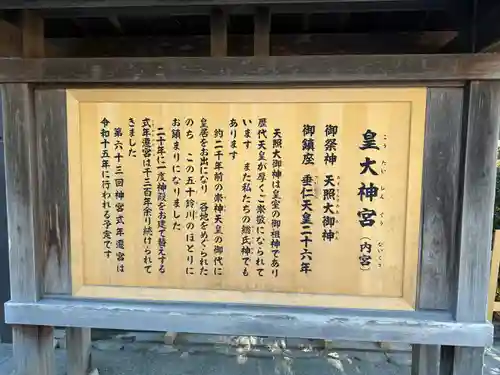 皇大神宮(内宮)
こうたいじんぐう
ないくう
御祭神 天照大御神
あまてらすおおみかみ
御鎮座 垂仁天皇二十六年
天照大御神は皇室の御祖神であり
歴代天皇が厚くご崇敬になられて
います また私たちの総氏神でも
あります
約二千年前の崇神天皇の御代に
皇居をお出になり 各地をめぐられた
のち この五十鈴川のほとりに
お鎮まりになりました
二十年に一度神殿をお建て替えする
式年遷宮は千三百年余り続けられて
きました
第六十三回神宮式年遷宮は
令和十五年に行われる予定です